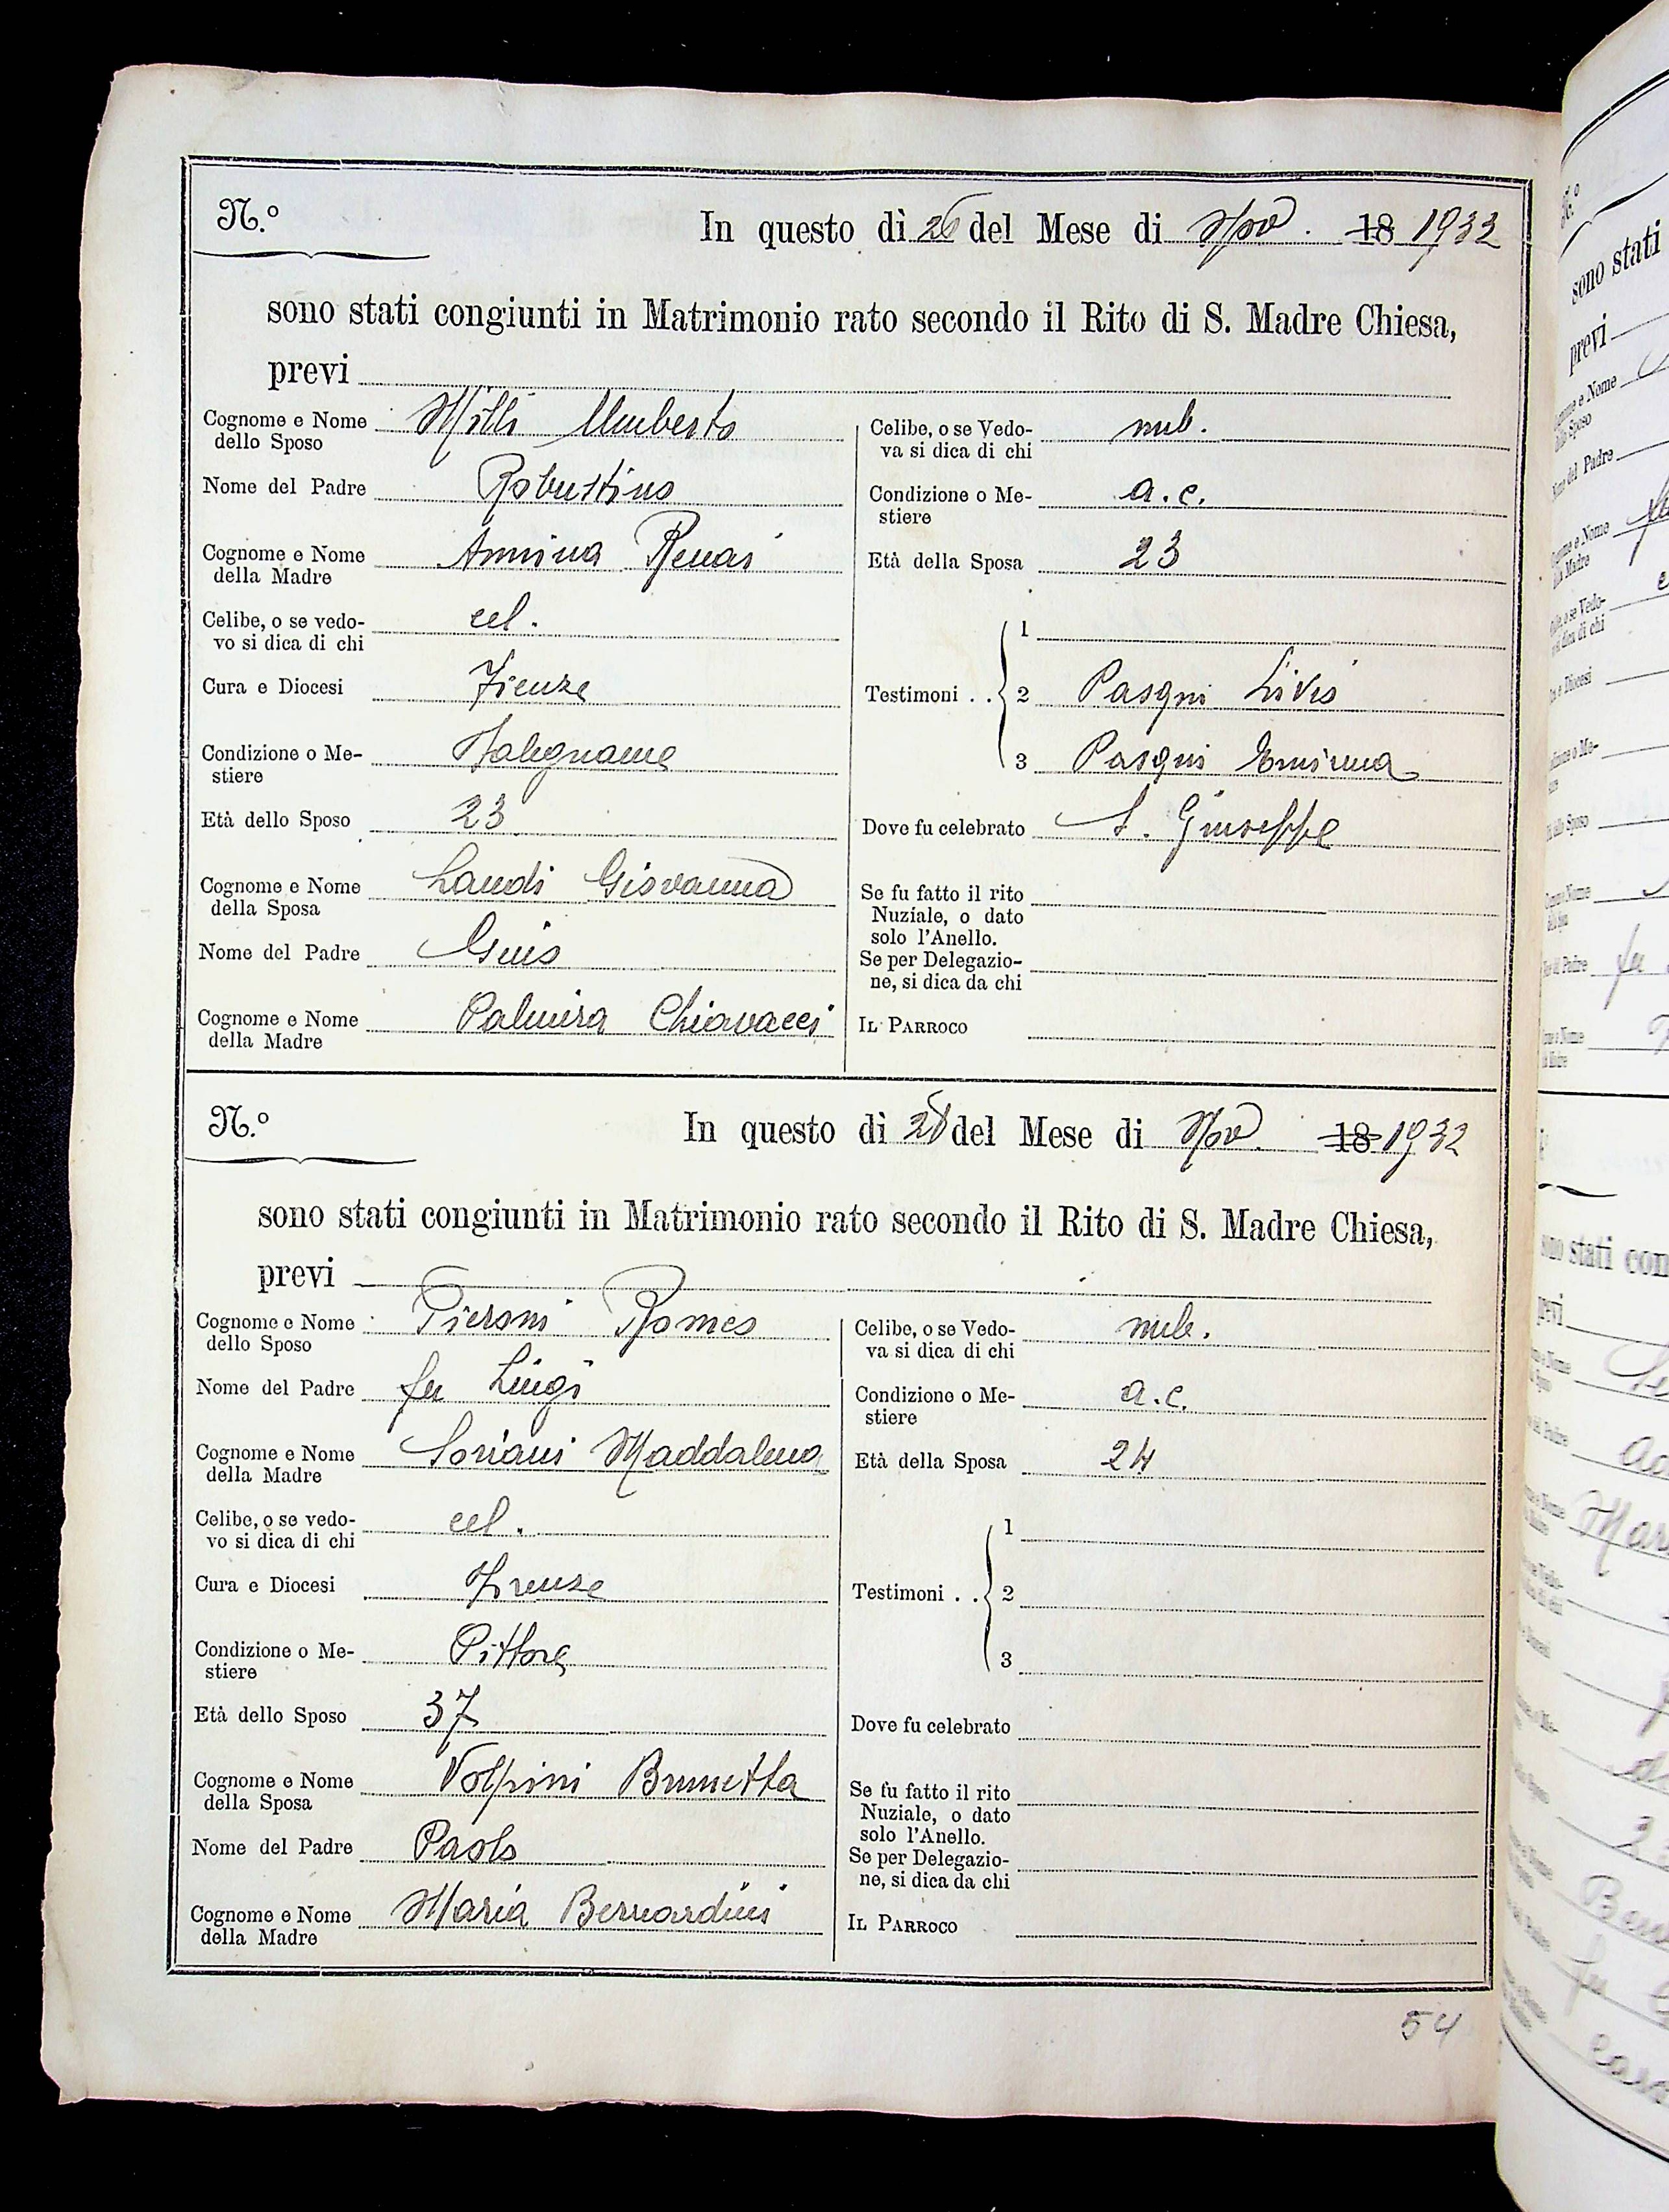 N.º
In questo dì 26 del Mese di Nov. 18 1932
sono stati congiunti in Matrimonio rato secondo il Rito di S. Madre Chiesa,
previ
Cognome e Nome dello Sposo Milli Umberto
Nome del Padre Robustino
Cognome e Nome della Madre Annina Renai
Celibe, o se vedo-
vo si dica di chi cel.
Cura e Diocesi Firenze
Condizione o Me-
stiere Falegname
Età dello Sposo 23
Cognome e Nome della Sposa Landi Giovanna
Nome del Padre Guis
Cognome e Nome della Madre Palmira Chiavacci
Celibe, o se Vedo-
va si dica di chi nub.
Condizione o Me-
stiere a.c.
Età della Sposa 23
Testimoni . .
1
2 Pasqui Livio
3 Pasqui Emirena
Dove fu celebrato S. Giuseppe
Se fu fatto il rito
Nuziale, o dato
solo l'Anello.
Se per Delegazio-
ne, si dica da chi
IL PARROCO
N.º
In questo dì 28 del Mese di Nov. 18 1932
sono stati congiunti in Matrimonio rato secondo il Rito di S. Madre Chiesa,
previ
Cognome e Nome dello Sposo Pieroni Romeo
Nome del Padre fu Luigi
Cognome e Nome della Madre Soriani Maddalena
Celibe, o se vedo-
vo si dica di chi cel.
Cura e Diocesi Firenze
Condizione o Me-
stiere Pittore
Età dello Sposo 37
Cognome e Nome della Sposa Volpini Brunetta
Nome del Padre Paolo
Cognome e Nome della Madre Maria Bernardini
Celibe, o se Vedo-
va si dica di chi nub.
Condizione o Me-
stiere a.c.
Età della Sposa 24
Testimoni . .
1
2
3
Dove fu celebrato
Se fu fatto il rito
Nuziale, o dato
solo l'Anello.
Se per Delegazio-
ne, si dica da chi
IL PARROCO
54